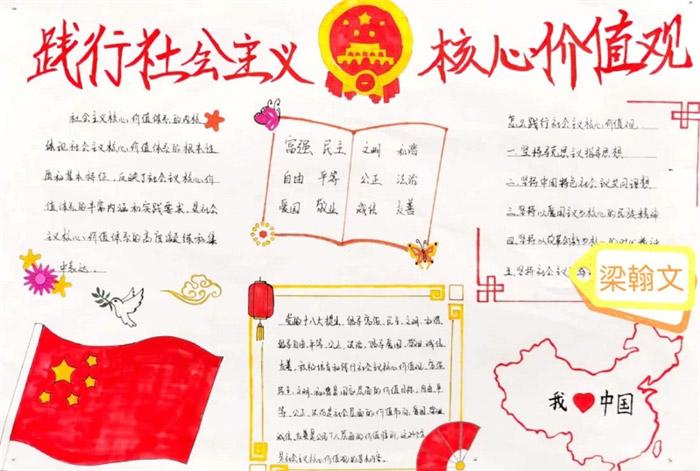 践行社会主义 核心价值观
社会主义核心价值体系的内核
体现社会主义核心价值体系的根本性
质和基本特征,反映了社会主义核心价
值体系的丰富内涵和实践要求,是社会
主义核心价值体系的高度凝练和集
中表达。
富强 民主 文明 和谐
自由 平等 公正 法治
爱国 敬业 诚信 友善
怎么践行社会主义核心价值观
一.坚持马克思主义指导思想
二.坚持中国特色社会主义共同理想
三.坚持以爱国主义为核心的民族精神
四.坚持以改革创新为核心的时代精神
五.坚持社会主义
梁翰文
党的十八大提出,倡导富强、民主、文明、和谐,
倡导自由、平等、公正、法治,倡导爱国、敬业、诚信、
友善,积极培育和践行社会主义核心价值观。富强、
民主、文明、和谐是国家层面的价值目标,自由、平
等、公正、法治是社会层面的价值取向,爱国、敬业、
诚信、友善是公民个人层面的价值准则,这24个字
是社会主义核心价值观的基本内容。
我 中国